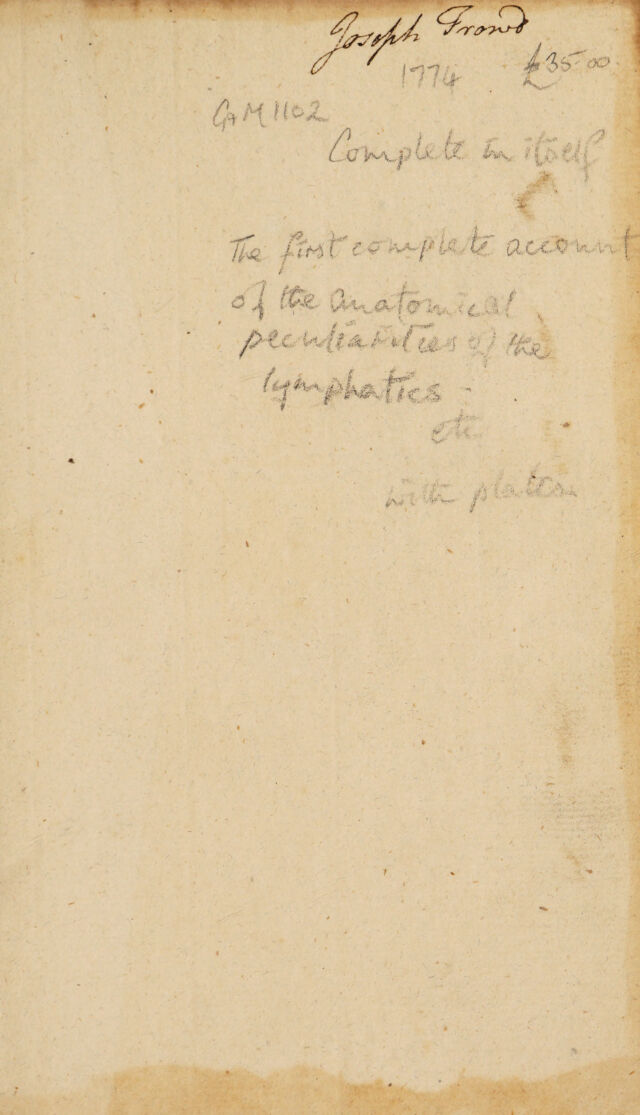 Joseph Frowd
1774 £35.00
GAM1102
Complete in itself
The first complete account
of the anatomical
peculiarities of the
lymphatics -
etc
with plates